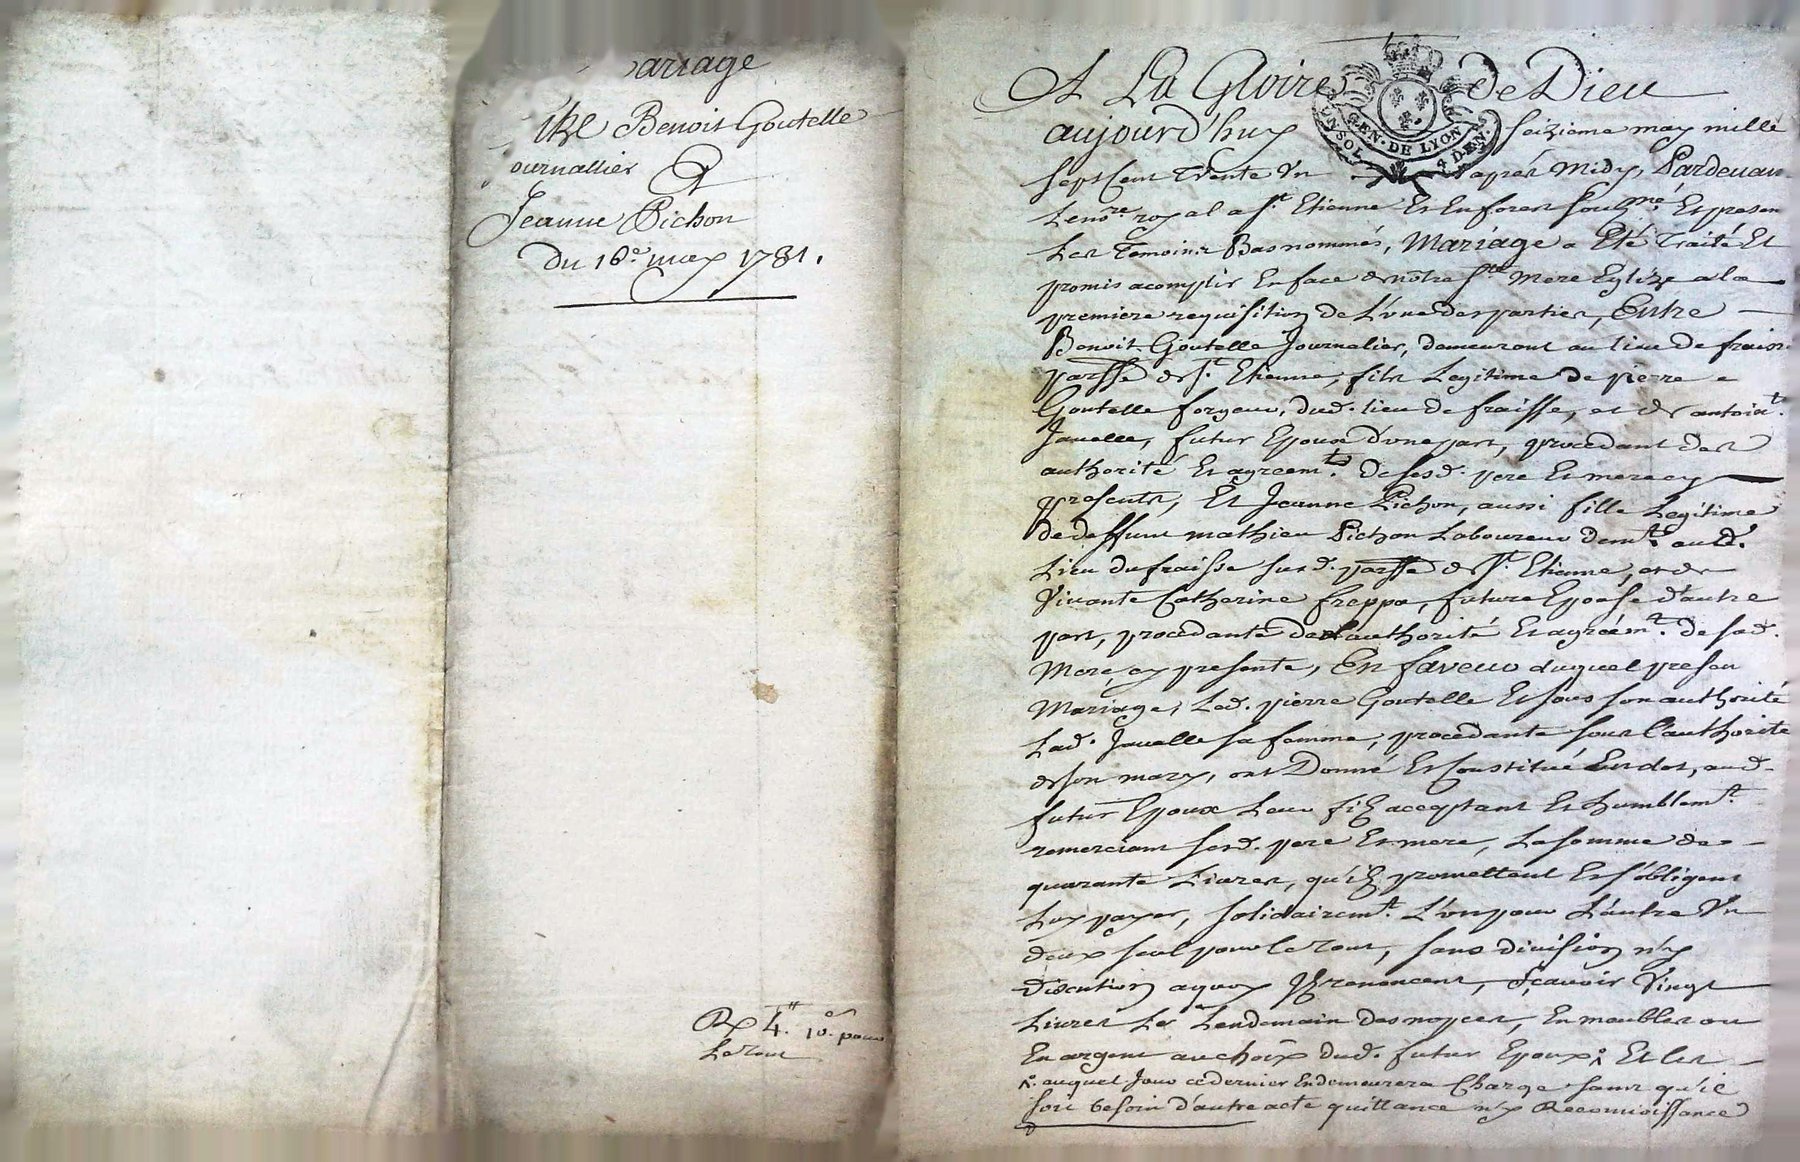 ariage
Benoit Goutelle
journallier
Et
Jeanne Pichon
Du 16e may 1731.
R 4tt. 10s. pour
Le Tout
A La Gloire de Dieu
GEN. DE LYON 4 DEN.
aujourd'huy seizieme may mille
sept Cent Trente Un après Midy, Pardevan
Le nore. royal a St. Etienne Et En forer souz.né Et presen
Les Temoins Bas nommés, Mariage a Eté Traité Et
promis acomplir En face de notre Ste. Mere Eglize a la
premiere requisition de L'une des parties, Entre
Benoit Goutelle Journalier, demeurant au lieu de fraisse
parsse de St. Etienne, fils Legitime de pierre
Goutelle forgeur, dud. lieu de fraisse, et de antoint.
Javelle, futur Epoux d'une part, procedant de
authorité Et agreemt. De sesd. pere Et mere cy
presents, Et Jeanne Pichon, aussi fille Legitime
de deffunt mathieu Pichon Laboureur demt. aud.
Lieu du fraisse susd. parsse de St. Etienne, et de
Vivante Catherine freppa, future Epouse d'autre
part, procedante de l'authorité Et agréemt. de sad.
Mere, cy presente, En faveur duquel presen
Mariage, Led. pierre Goutelle Et sous son authorité
Lad. Javelle sa femme, procedante sous l'authorité
de son mary, ont Donné Et Constitué En dot, aud.
futur Epoux Leur filz acceptant Et humblemt.
remerciant sesd. pere Et mere, La somme de
quarante Livres, qu'ilz promettent Et s'obligent
Luy payer, solidairemt. L'un pour L'autre Un
deux seul pour le Tout, sans division n'y
discution aquoy Ilz renoncent, Sçavoir Vingt
Livres Le Lendemain des noces, En meubles ou
En argent au choix dud. futur Epoux, Et les
auquel Jour ce dernier En demeurera Chargé sans qu'il
soit besoin d'autre acte quittance n'y Reconnoissance